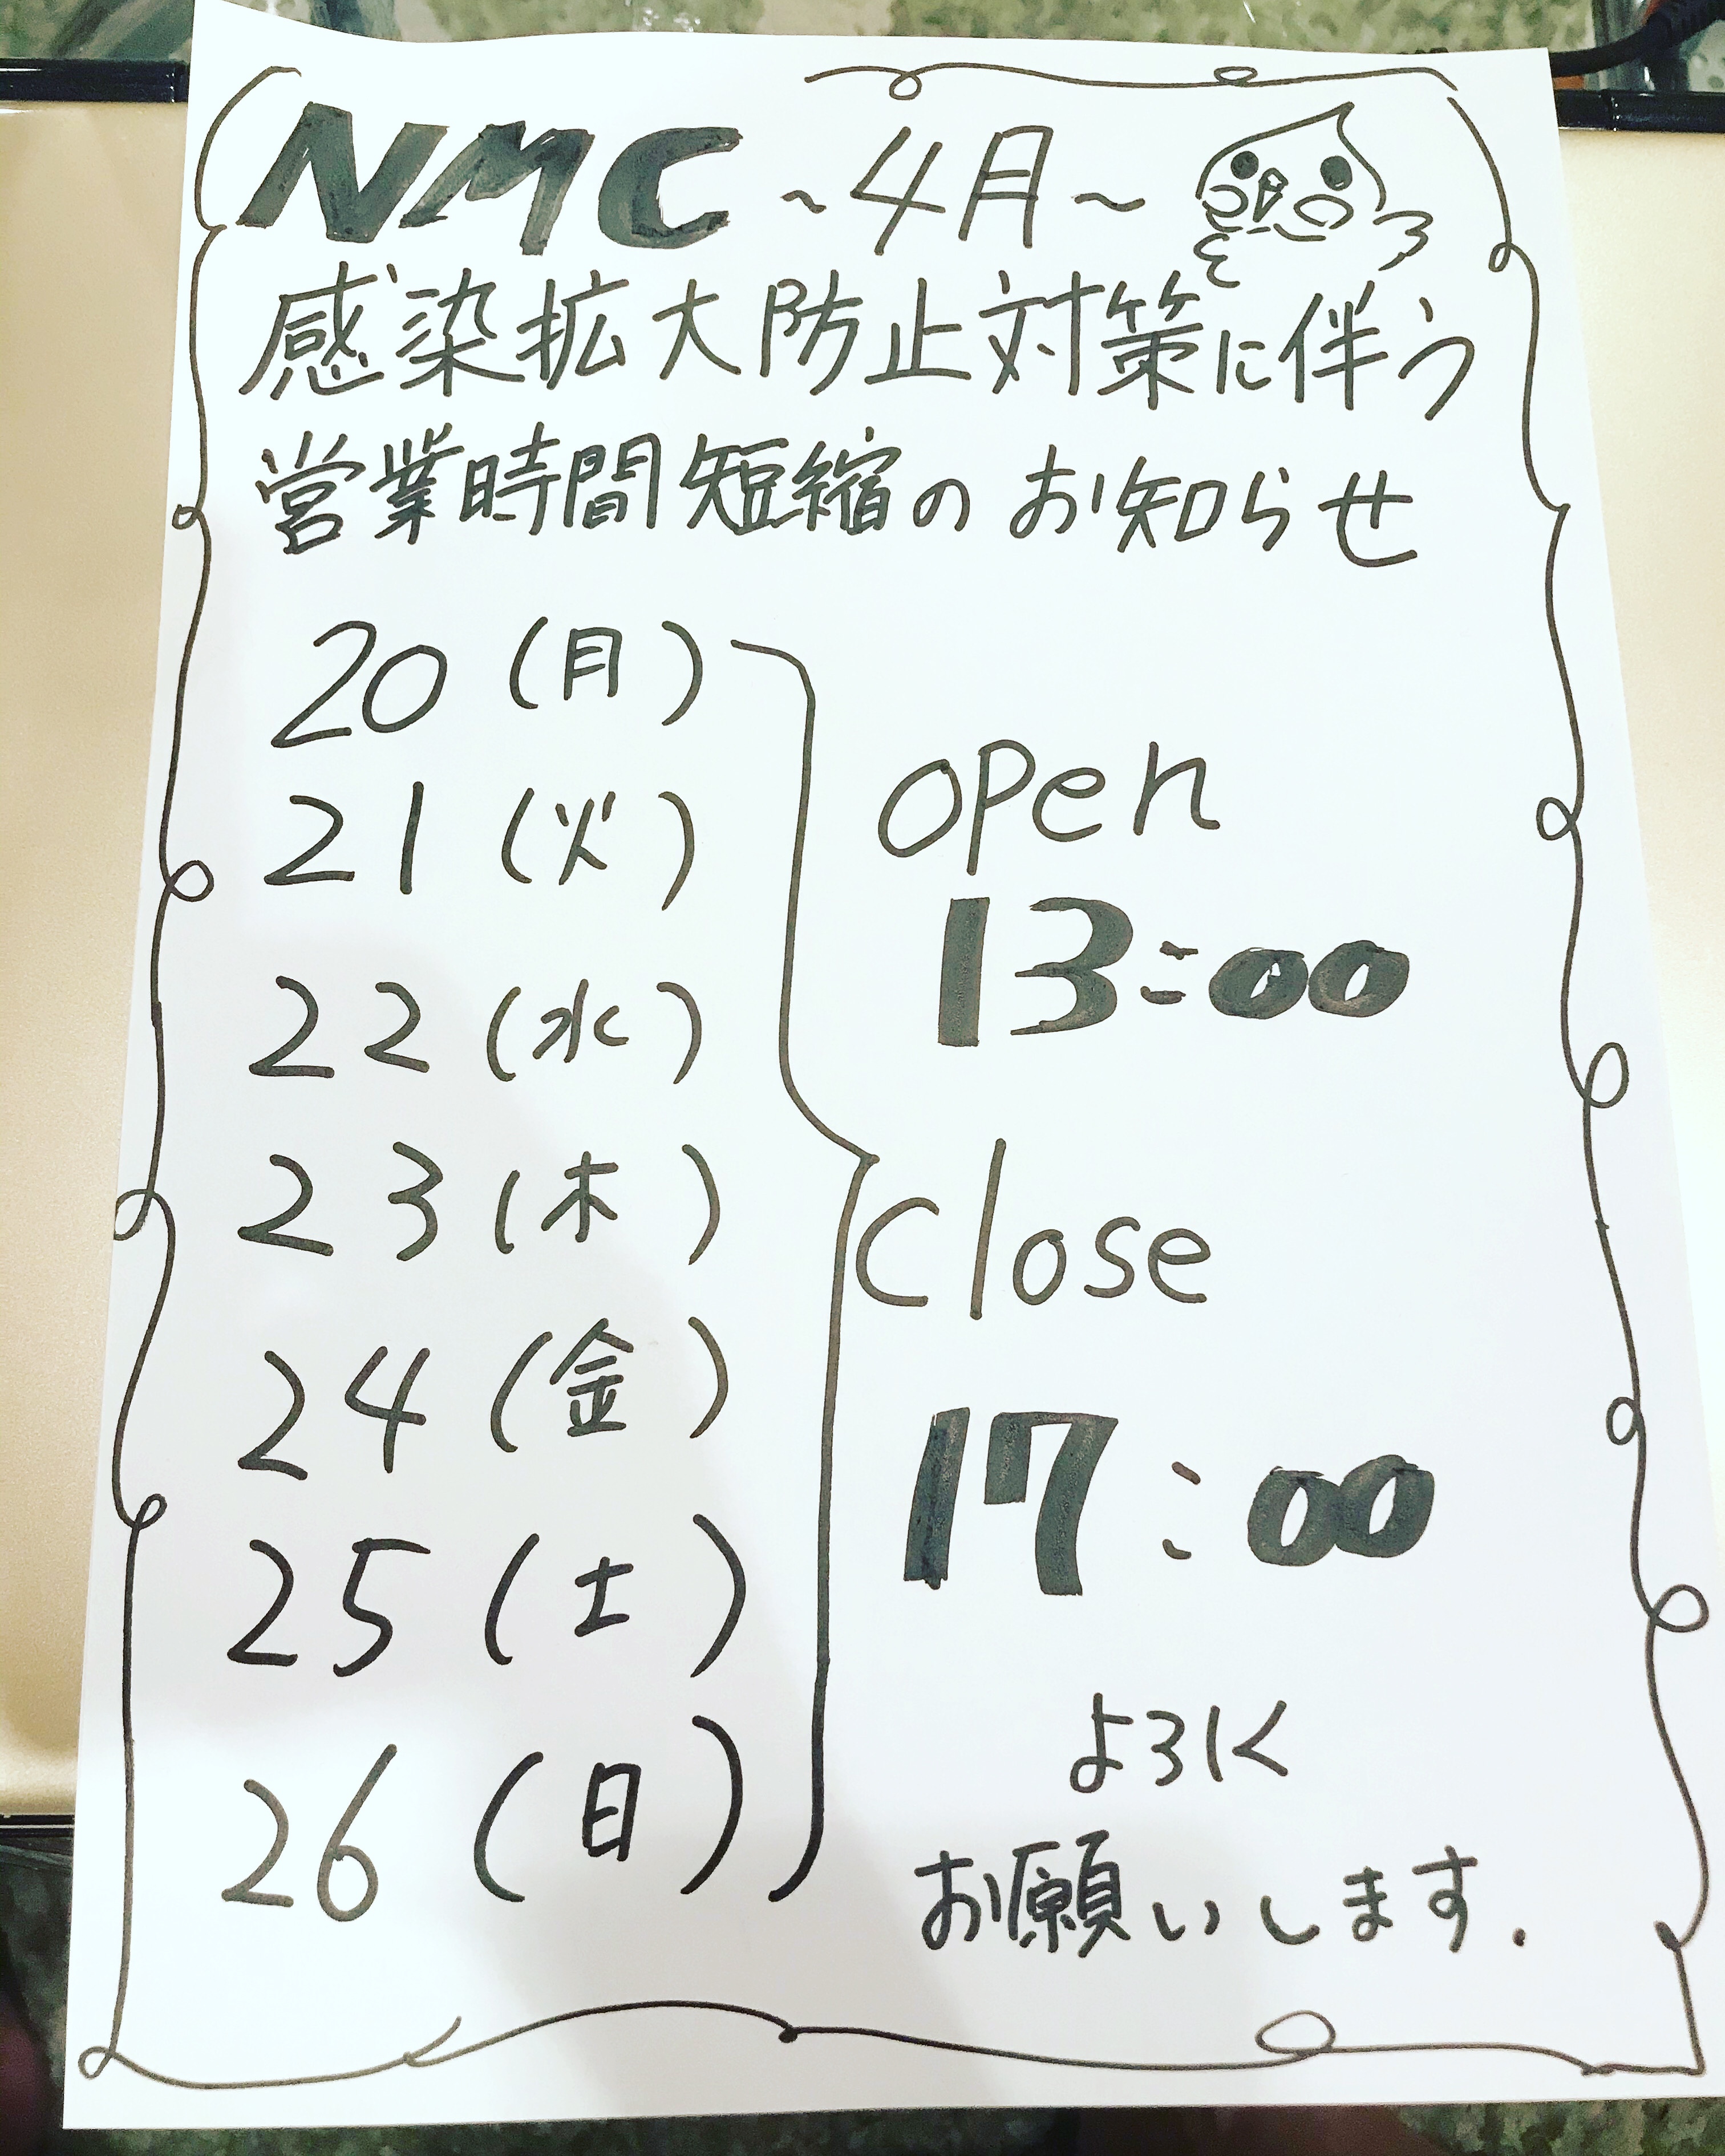 NMC ~4月~
感染拡大防止対策に伴う
営業時間短縮のお知らせ
20(月)
21(火)
22(水)
23(木)
24(金)
25(土)
26(日)
open
13:00
close
17:00
よろしく
お願いします.